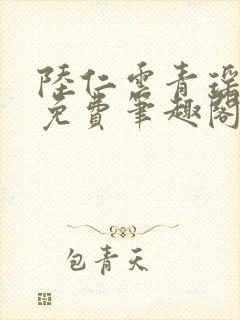 陸仁雲青瑶
免費筆趣閣
包青天